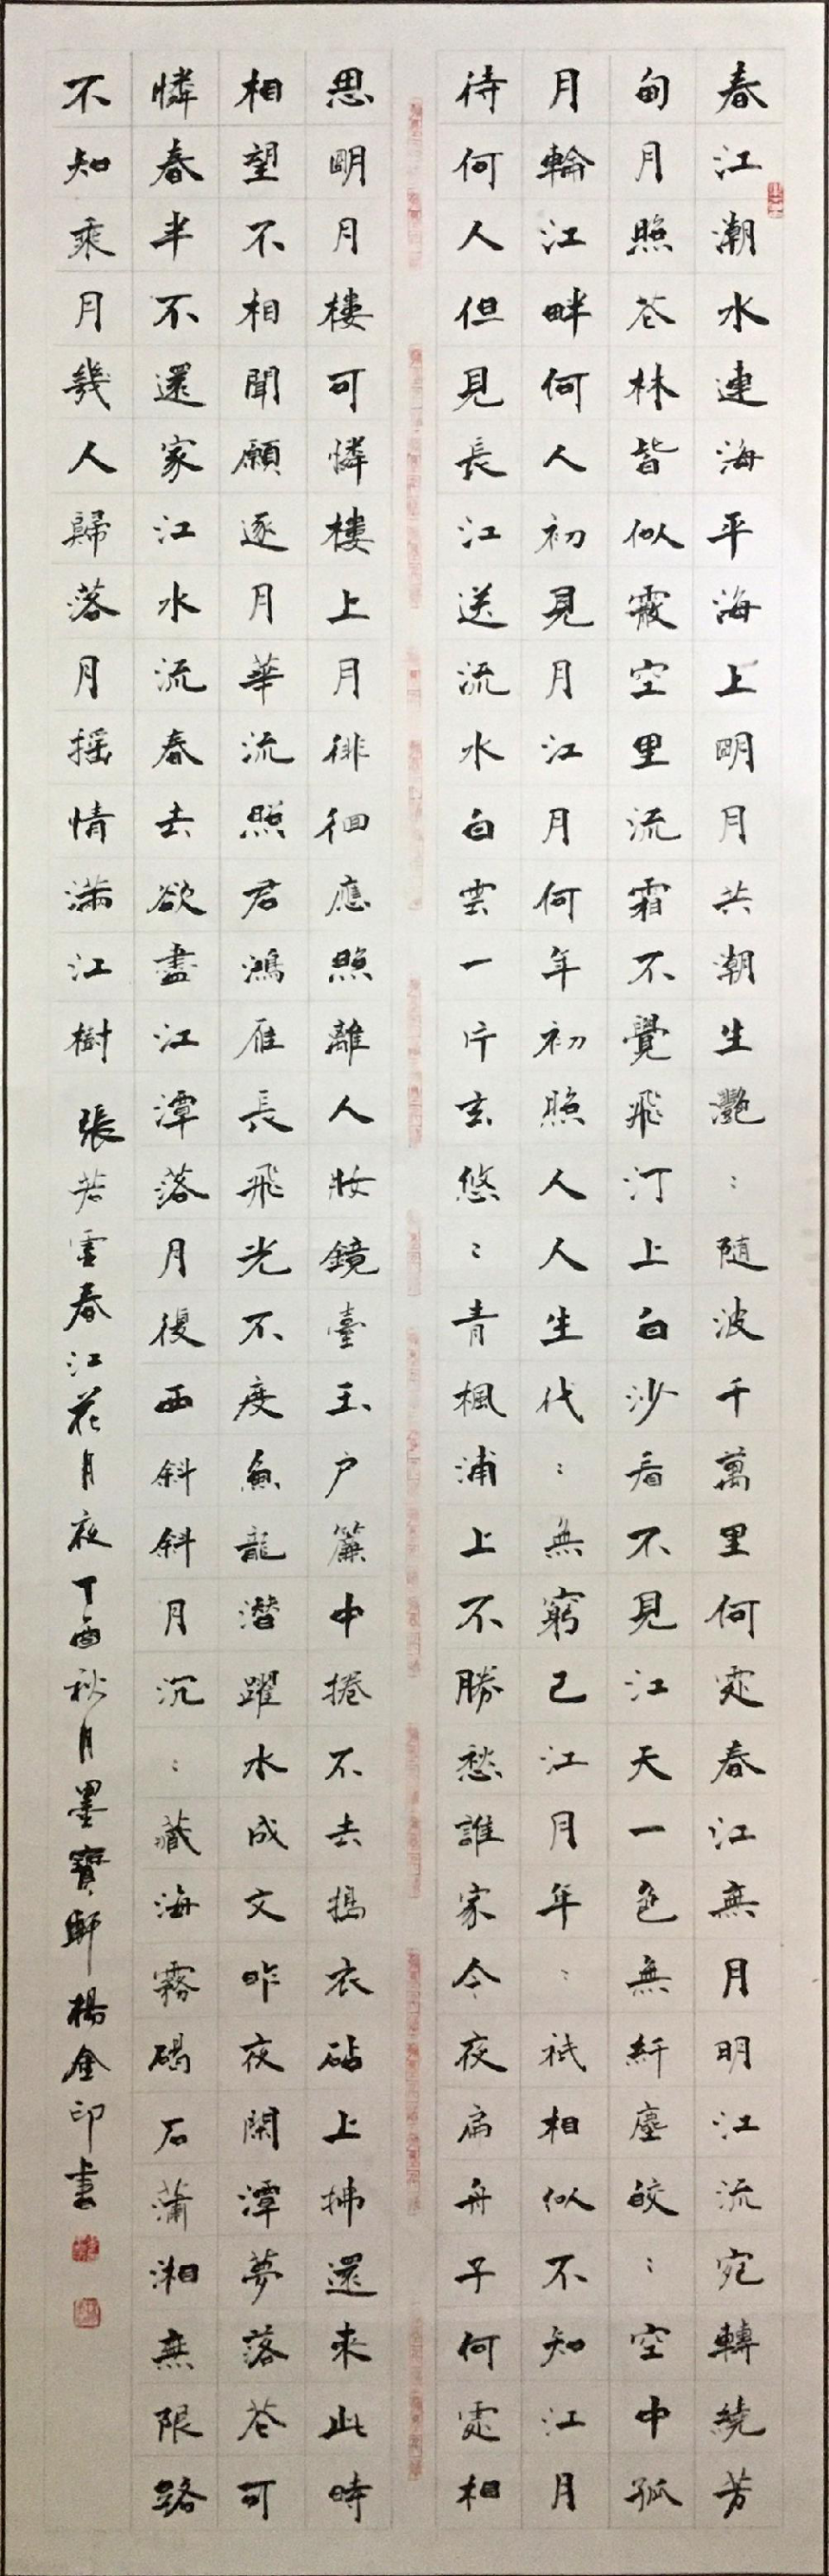 春江潮水連海平海上明月共潮生灧：随波千萬里何處春江無月明江流宛轉繞芳
甸月照花林皆似霰空里流霜不覺飛汀上白沙看不見江天一色無纤塵皎：空中孤
月輪江畔何人初見月江月何年初照人人生代：無窮已江月年：祇相似不知江月
待何人但見長江送流水白雲一片去悠：青楓浦上不勝愁誰家今夜扁舟子何處相
思明月樓可憐樓上月徘徊應照離人妝鏡臺玉户簾中捲不去搗衣砧上拂還來此時
相望不相聞願逐月華流照君鴻雁長飛光不度魚龍潛躍水成文昨夜閑潭夢落花可
憐春半不還家江水流春去欲盡江潭落月復西斜斜月沉：藏海霧碣石瀟湘無限路
不知乘月幾人歸落月摇情满江樹 張若虛春江花月夜丁酉秋月墨寶軒楊金印書